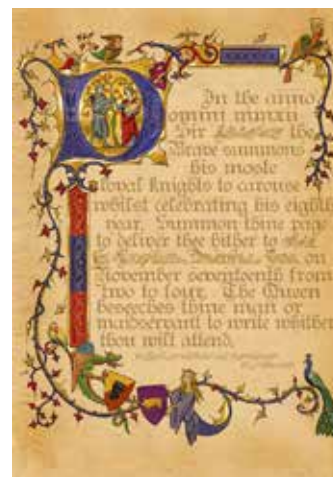 In the anno
Domini mmxii
Sir the
Brave summons
his moste
loyal knights to carouse
whilst celebrating his eighth
year. Summon thine page
to deliver thee hither to
on
November seventeenth from
two to four. The Queen
beseeches thine man or
maidservant to write whether
thou wilt attend.